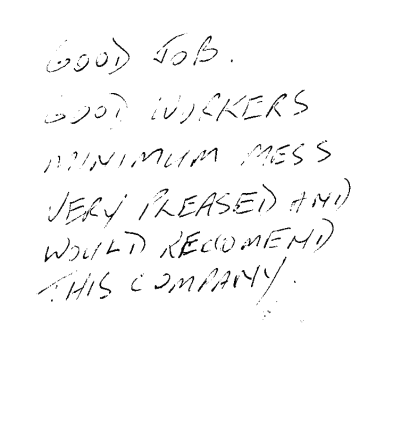 GOOD JOB.
GOOD WORKERS
MINIMUM MESS
VERY PLEASED AND
WOULD RECOMEND
THIS COMPANY.